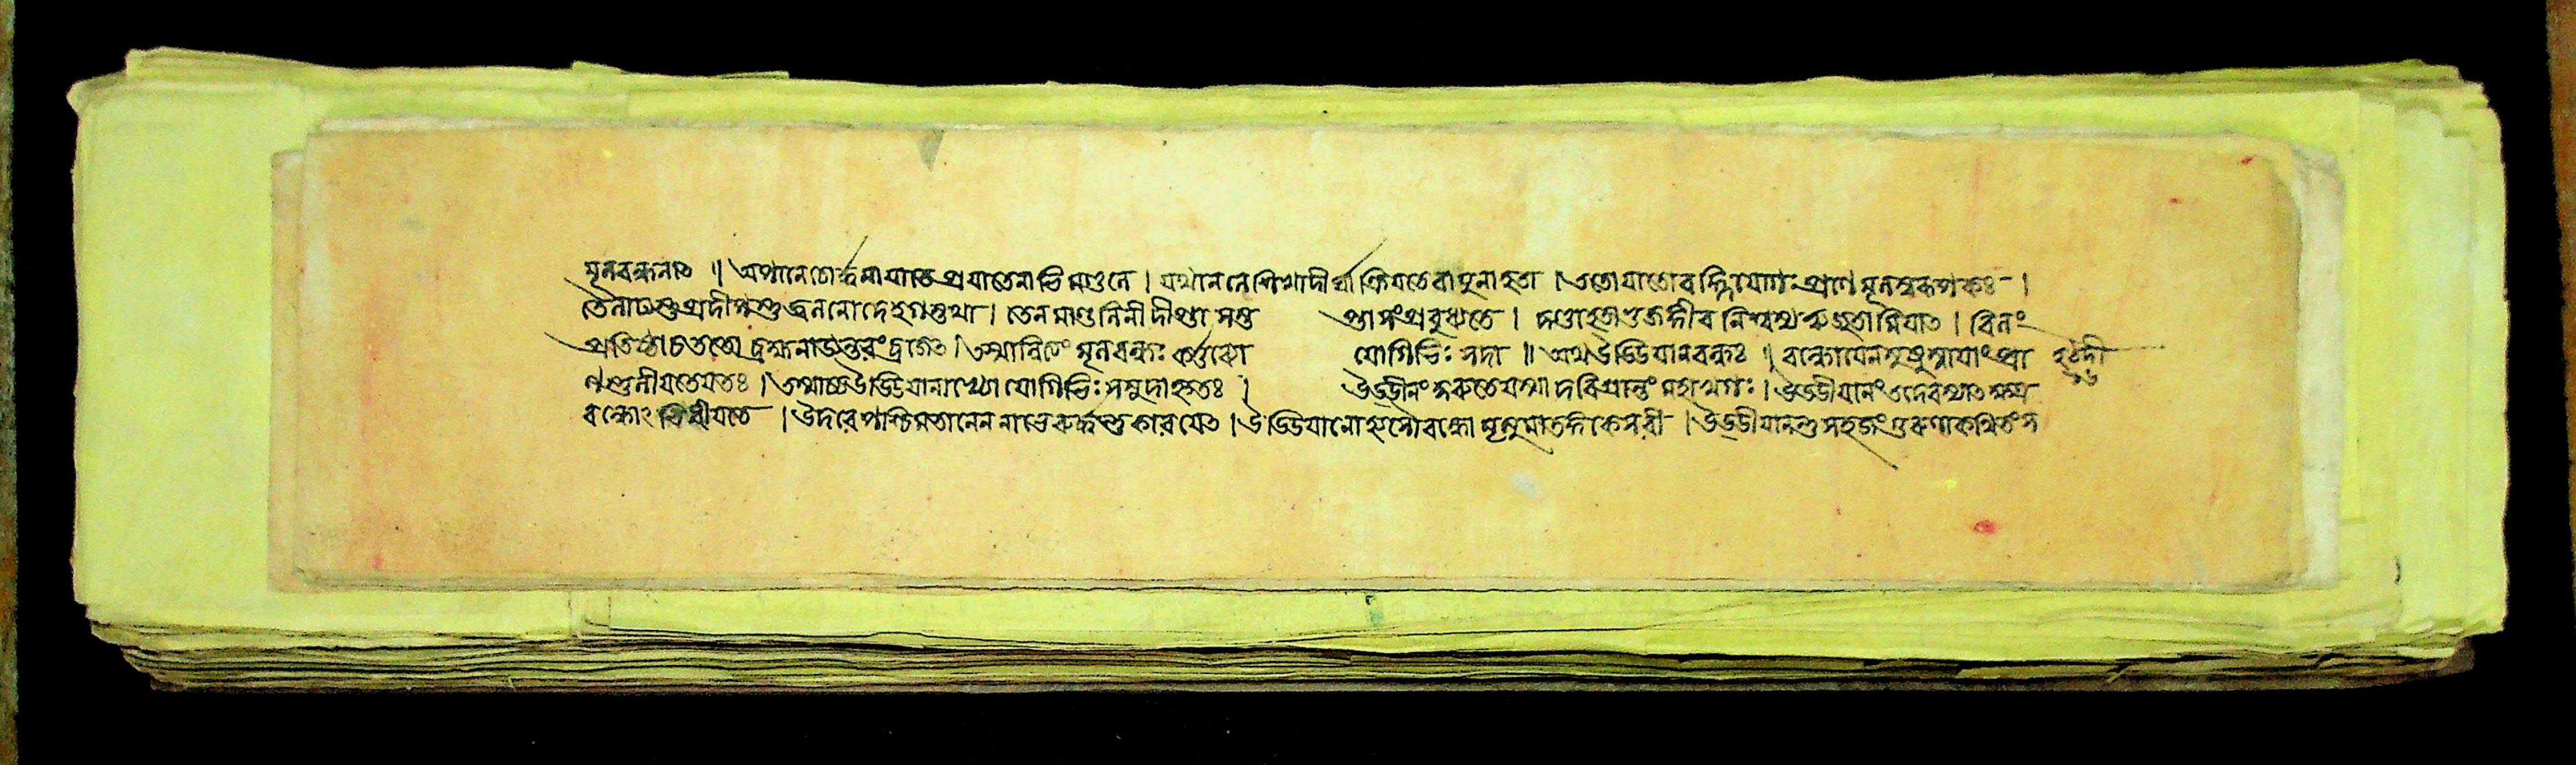 মূলবন্ধনাৎ ॥ অপানেচোর্দ্ধগাযাতে প্রযাতেবহ্নিমণ্ডলে । যথানলশিখাদীর্ঘা ক্রিযতে বাযুনাহতা । ততোযাতোবহ্ন্যপানৌ প্রাণমূলস্বরূপকঃ ।
তেনাত্যন্তপ্রদীপ্তস্তু জ্বলনোদেহগস্তথা । তেন কুণ্ডলিনীদীপ্তা সন্তপ্তাসংপ্রবুধ্যতে । দণ্ডাহতাভুজঙ্গীব নিশ্বস্য ঋজুতামিযাৎ । বিলং
প্রবিষ্টাচ ততো ব্রহ্মনাড্যন্তরংব্রজেৎ । তস্মান্নিত্যং মূলবন্ধঃ কর্ত্তব্যো যোগিভিঃ সদা ॥ অথ উড্ডিযানবন্ধঃ ॥ বন্ধোযেনসুষুম্নাযাংপ্রা হঠদী
ণস্তুড্ডীযতেযতঃ । তস্মাদুড্ডিযানাখ্যো যোগিভিঃ সমুদাহৃতঃ । উড্ডীনং কুরুতেযস্মাদবিশ্রান্তং মহাখগঃ । উড্ডীযানং তদেবস্যাৎ তত্র
বন্ধোঽভিধীযতে । উদরে পশ্চিমতানেন নাভেরূর্দ্ধন্তু কারযেৎ । উড্ডিযানোহ্যসৌবন্ধো মৃত্যুমাতঙ্গকেসরী । উড্ডীযানন্তু সহজং গুরুণাকথিতং স